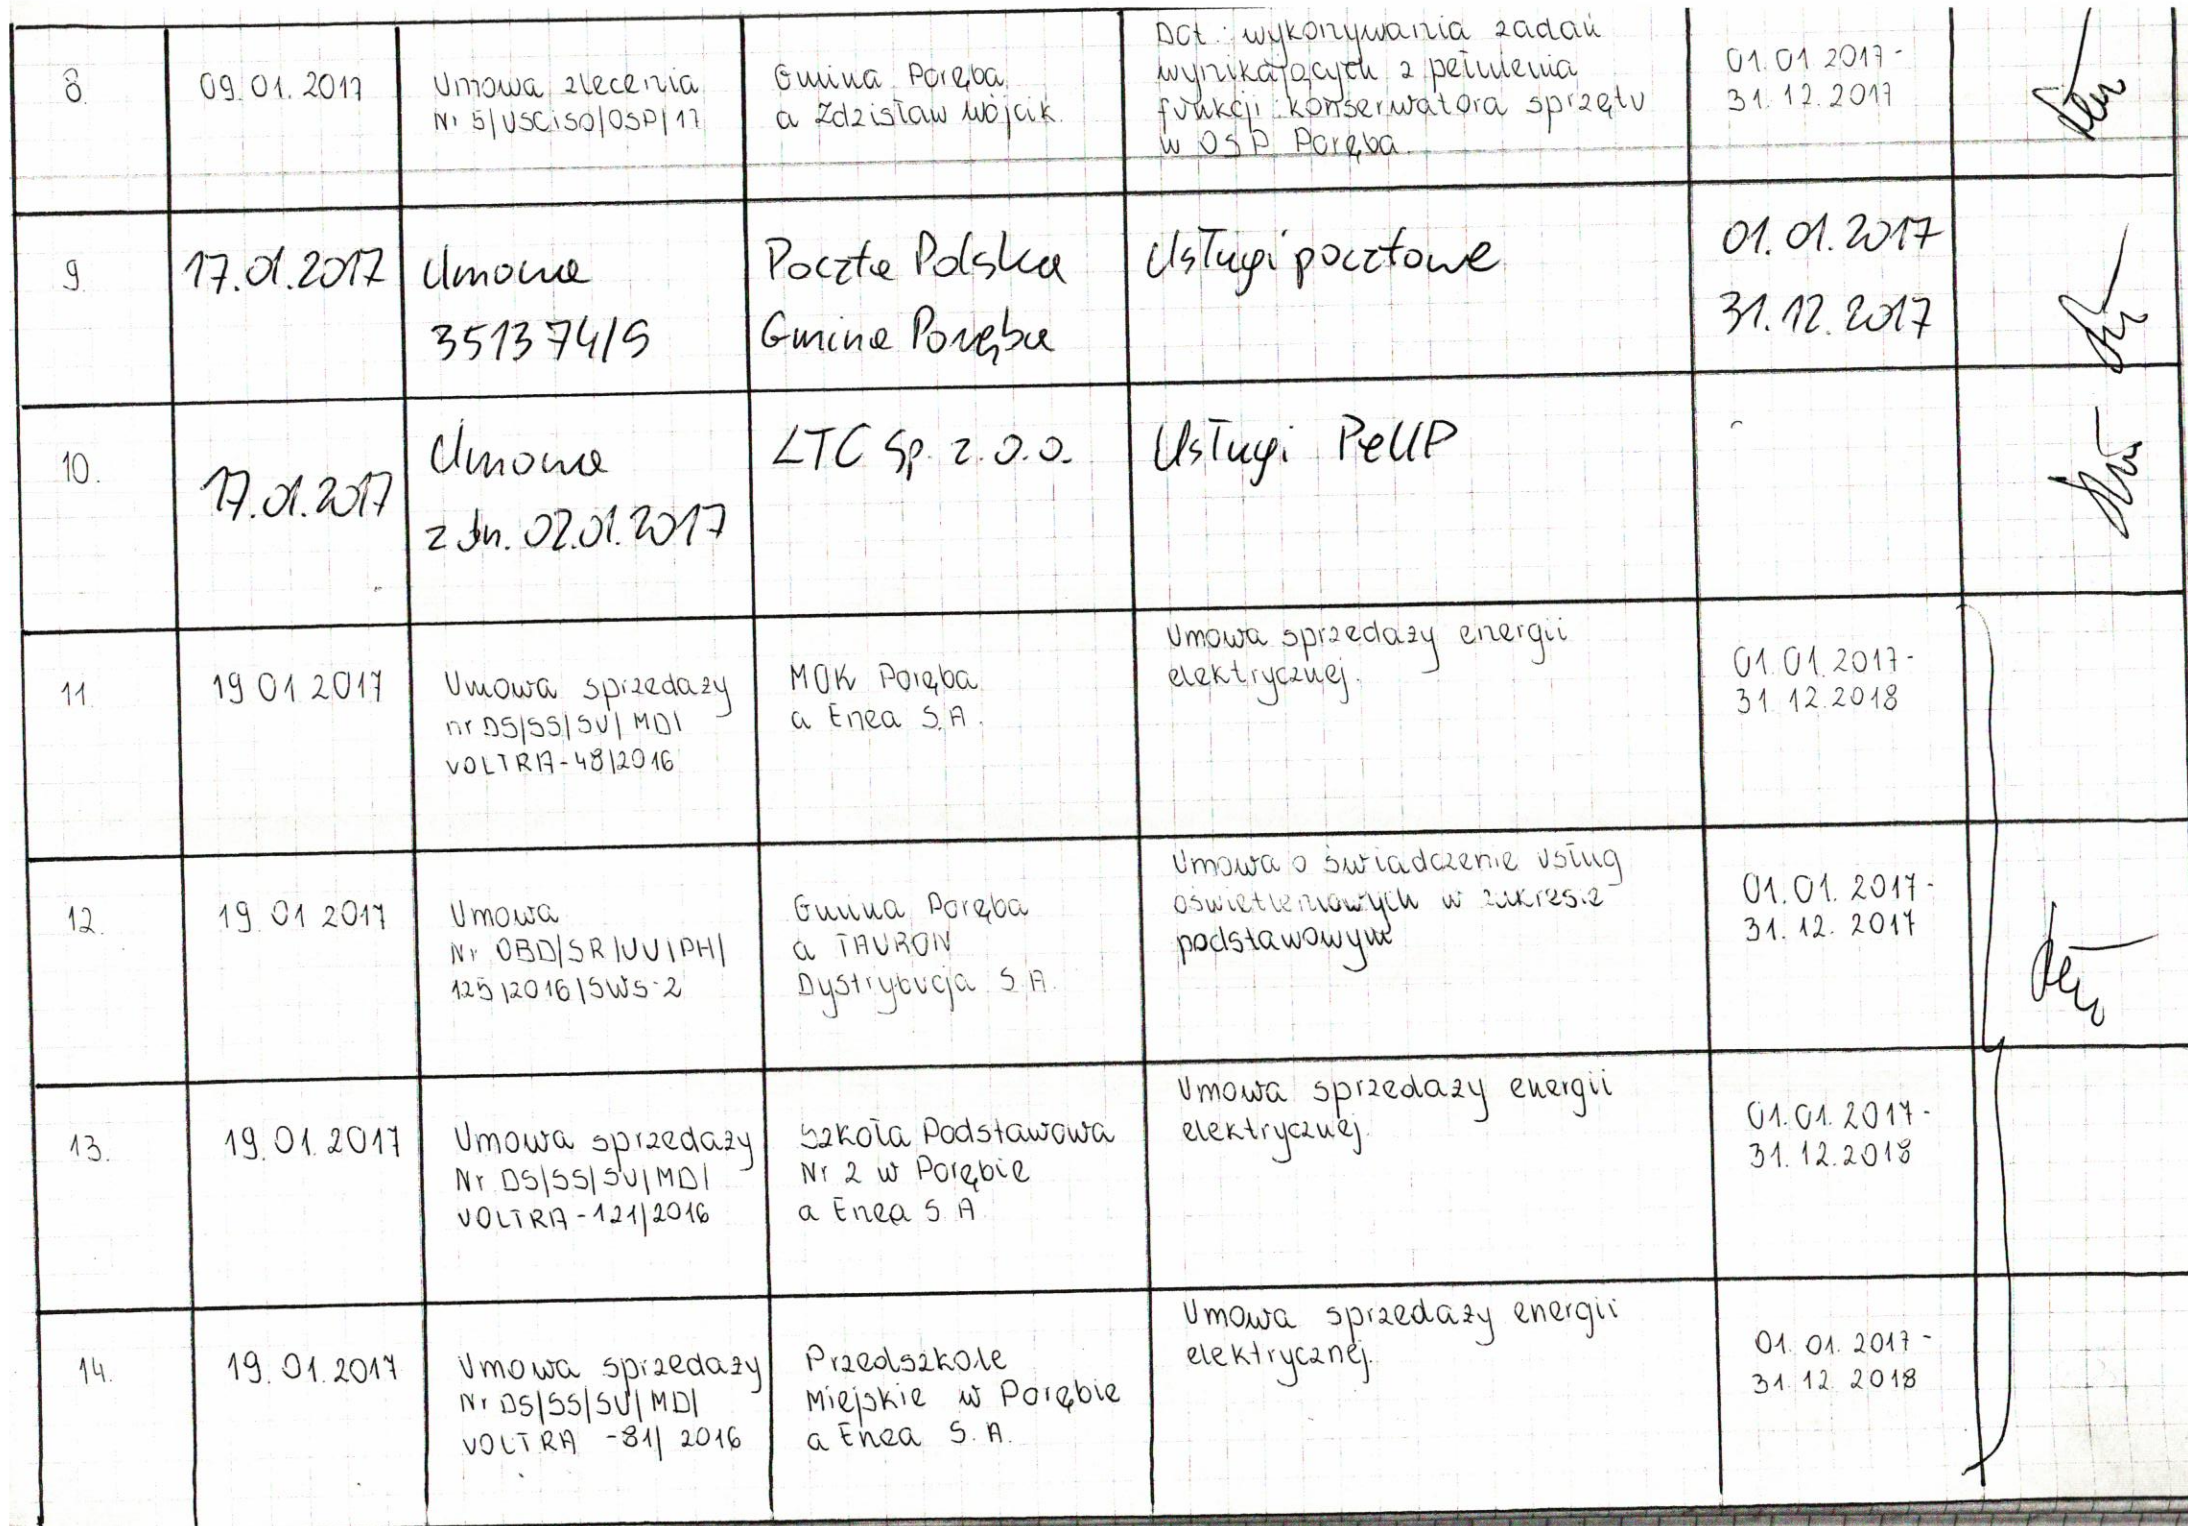 8.
09.01.2017
Umowa zlecenia
Nr 5/USCiSO/OSP/17
Gmina Poręba
a Zdzisław Wójcik.
Dot.: wykonywania zadań
wynikających z pełnienia
funkcji konserwatora sprzętu
w OSP Poręba.
01.01.2017-
31.12.2017
9.
17.01.2017
Umowa
351374/S
Poczta Polska
Gmina Poręba
Usługi pocztowe
01.01.2017
31.12.2017
10.
17.01.2017
Umowa
z dn. 02.01.2017
LTC Sp. z.o.o.
Usługi PeUP
11.
19.01.2017
Umowa sprzedaży
nr DS/SS/SU/MD/
VOLTRA-48/2016
MOK Poręba
a Enea S.A.
Umowa sprzedaży energii
elektrycznej.
01.01.2017-
31.12.2018
12.
19.01.2017
Umowa
Nr OBD/SR/UU/PH/
125/2016/SWS-2
Gmina Poręba
a TAURON
Dystrybucja S.A.
Umowa o świadczenie usług
oświetleniowych w zakresie
podstawowym
01.01.2017-
31.12.2017
13.
19.01.2017
Umowa sprzedaży
Nr DS/SS/SU/MD/
VOLTRA-121/2016
Szkoła Podstawowa
Nr 2 w Porębie
a Enea S.A
Umowa sprzedaży energii
elektrycznej.
01.01.2017-
31.12.2018
14.
19.01.2017
Umowa sprzedaży
Nr DS/SS/SU/MD/
VOLTRA -81/2016
Przedszkole
Miejskie w Porębie
a Enea S.A.
Umowa sprzedaży energii
elektrycznej.
01.01.2017-
31.12.2018